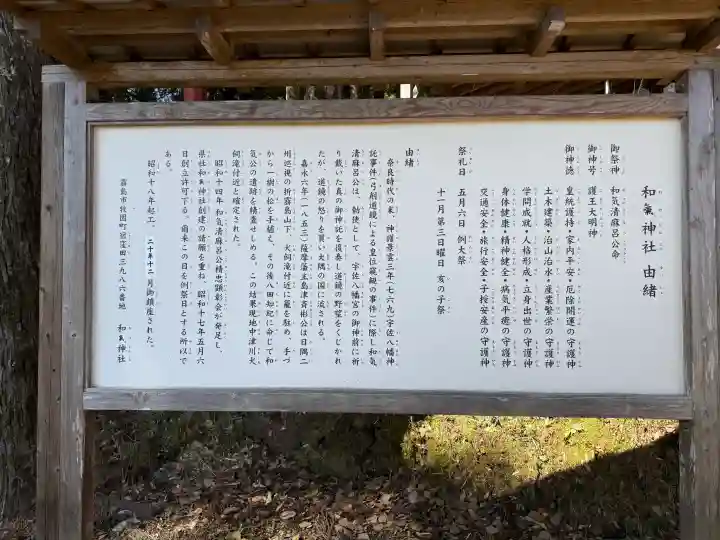 和氣神社 由緒
御祭神 和気清麻呂公命
御神号 護王大明神
御神徳 皇統護持・家内平安・厄除開運の守護神
土木建築・治山治水・産業繁栄の守護神
学問成就・人格形成・立身出世の守護神
身体健康・精神健全・病気平癒の守護神
交通安全・旅行安全・子授安産の守護神
祭礼日 五月六日 例大祭
十一月第三日曜日 亥の子祭
由緒
奈良時代の末、神護景雲三年(七六九)宇佐八幡神
託事件(弓削道鏡による皇位窺覦の事件)に際し和気
清麻呂公は、勅使として、宇佐八幡宮の御神前に祈
り戴いた真の御神託を復奏し道鏡の野望をくじかれ
たが、道鏡の怒りを買い大隅の国に流される。
嘉永六年(一八五三)薩摩藩主島津斉彬公は日隅二
州巡視の折霧島山下、犬飼滝付近に籠を駐め、手づ
から一樹の松を手植え、その後八田知紀に命じて和
気公の遺跡を精査せしめる。この結果現地中津川犬
飼滝付近と確定された。
昭和十四年 和気清麻呂公精忠顕彰会が発足し、
県社和氣神社創建の請願を重ね、昭和十七年五月六
日創立許可下る。爾来この日を例祭日とする所以で
ある。
昭和十八年起工、 二十年十二月御鎮座された。
霧島市牧園町宿窪田三九八六番地 和氣神社